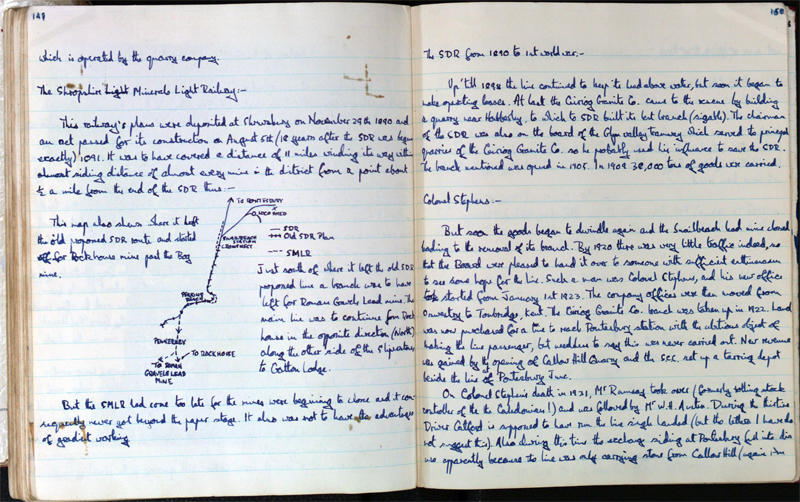 149
which is operated by the quarry company.
The Shropshire Light Minerals Light Railway:-
This railway's plans were deposited at Shrewsbury on November 29th 1890 and
an act passed for its construction on August 5th (18 years after the SDR was begun
exactly) 1891. It was to have covered a distance of 11 miles winding its way within
almost siding distance of almost every mine in the district from a point about
½ a mile from the end of the SDR thus:-
This map also shows where it left
the old proposed SDR route and started
off for Rock house mine past the Bog
mine.
TO PONTESBURY
LOCO SHED
SNAILBEACH
STATION
SDR
Old SDR Plan
SMLR
PENNERLEY
TO ROCK HOUSE
TO ROMAN
GRAVELS LEAD
MINE
Just south of where it left the old SDR
proposed line a branch was to have
left for Roman Gravels Lead mine. The
main line was to continue from Rock
house in the opposite direction (North)
along the other side of the Stiperstones
to Gatten Lodge.
But the SMLR had come too late for the mines were beginning to close and it con-
sequently never got beyond the paper stage. It also was not to have the advantages
of gradient working
150
The SDR from 1890 to 1st world war:-
Up 'till 1898 the line continued to keep its head above water, but soon it began to
make operating losses. At last the Ceiriog Granite Co. came to the rescue by building
a quarry near Habberley, to which the SDR built its last branch. The chairman
of the SDR was also on the board of the Glyn valley tramway which served the principal
quarries of the Ceiriog Granite Co. so he probably used his influence to save the SDR.
The branch mentioned was opened in 1905. In 1909 38,000 tons of goods were carried.
Colonel Stephens:-
But soon the goods began to dwindle again and the Snailbeach lead mine closed
leading to the removal of its branch. By 1920 there was very little traffic indeed, so
that the Board were pleased to hand it over to someone with sufficient enthusiasm
to see some hope for the line. Such a man was Colonel Stephens, and his new office
took started from January 1st 1923. The company offices were then moved from
Oswestry to Tonbridge, Kent. The Ceiriog Granite Co. branch was taken up in 1922. Land
was now purchased for a line to reach Pontesbury station with the obvious object of
making the line passenger, but needless to say this was never carried out. New revenue
was gained by the opening of Callow Hill Quarry and the S.C.C. set up a tarring depot
beside the line at Pontesbury Junc.
On Colonel Stephens death in 1931, Mr Ramsay took over (formerly rolling stock
controller of the the Caledonian!) and was followed by Mr W.H. Austin. During the thirties
Driver Gatford is supposed to have run the line single handed (but the letters I have do
not suggest this). Also during this time the exchange siding at Pontesbury fell into dis
use apparently because the line was only carrying stone from Callow Hill (again